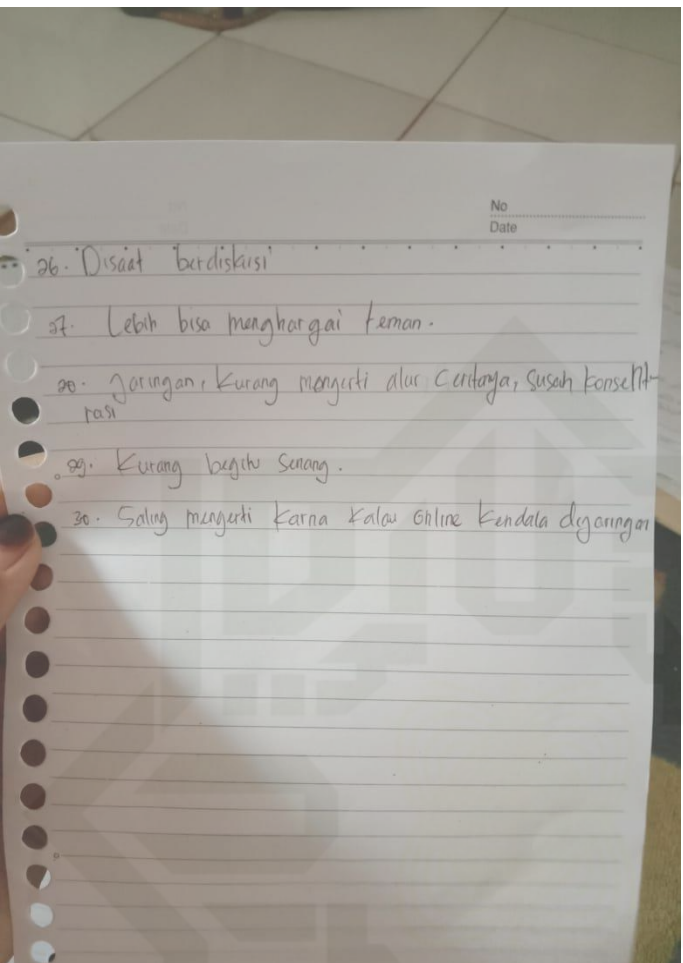 No
Date
26. Disaat berdiskusi
27. Lebih bisa menghargai teman.
28. Jaringan, Kurang mengerti alur ceritanya, susah konsent-
rasi
29. Kurang begitu senang.
30. Saling mengerti karna kalau online kendala dijaringan